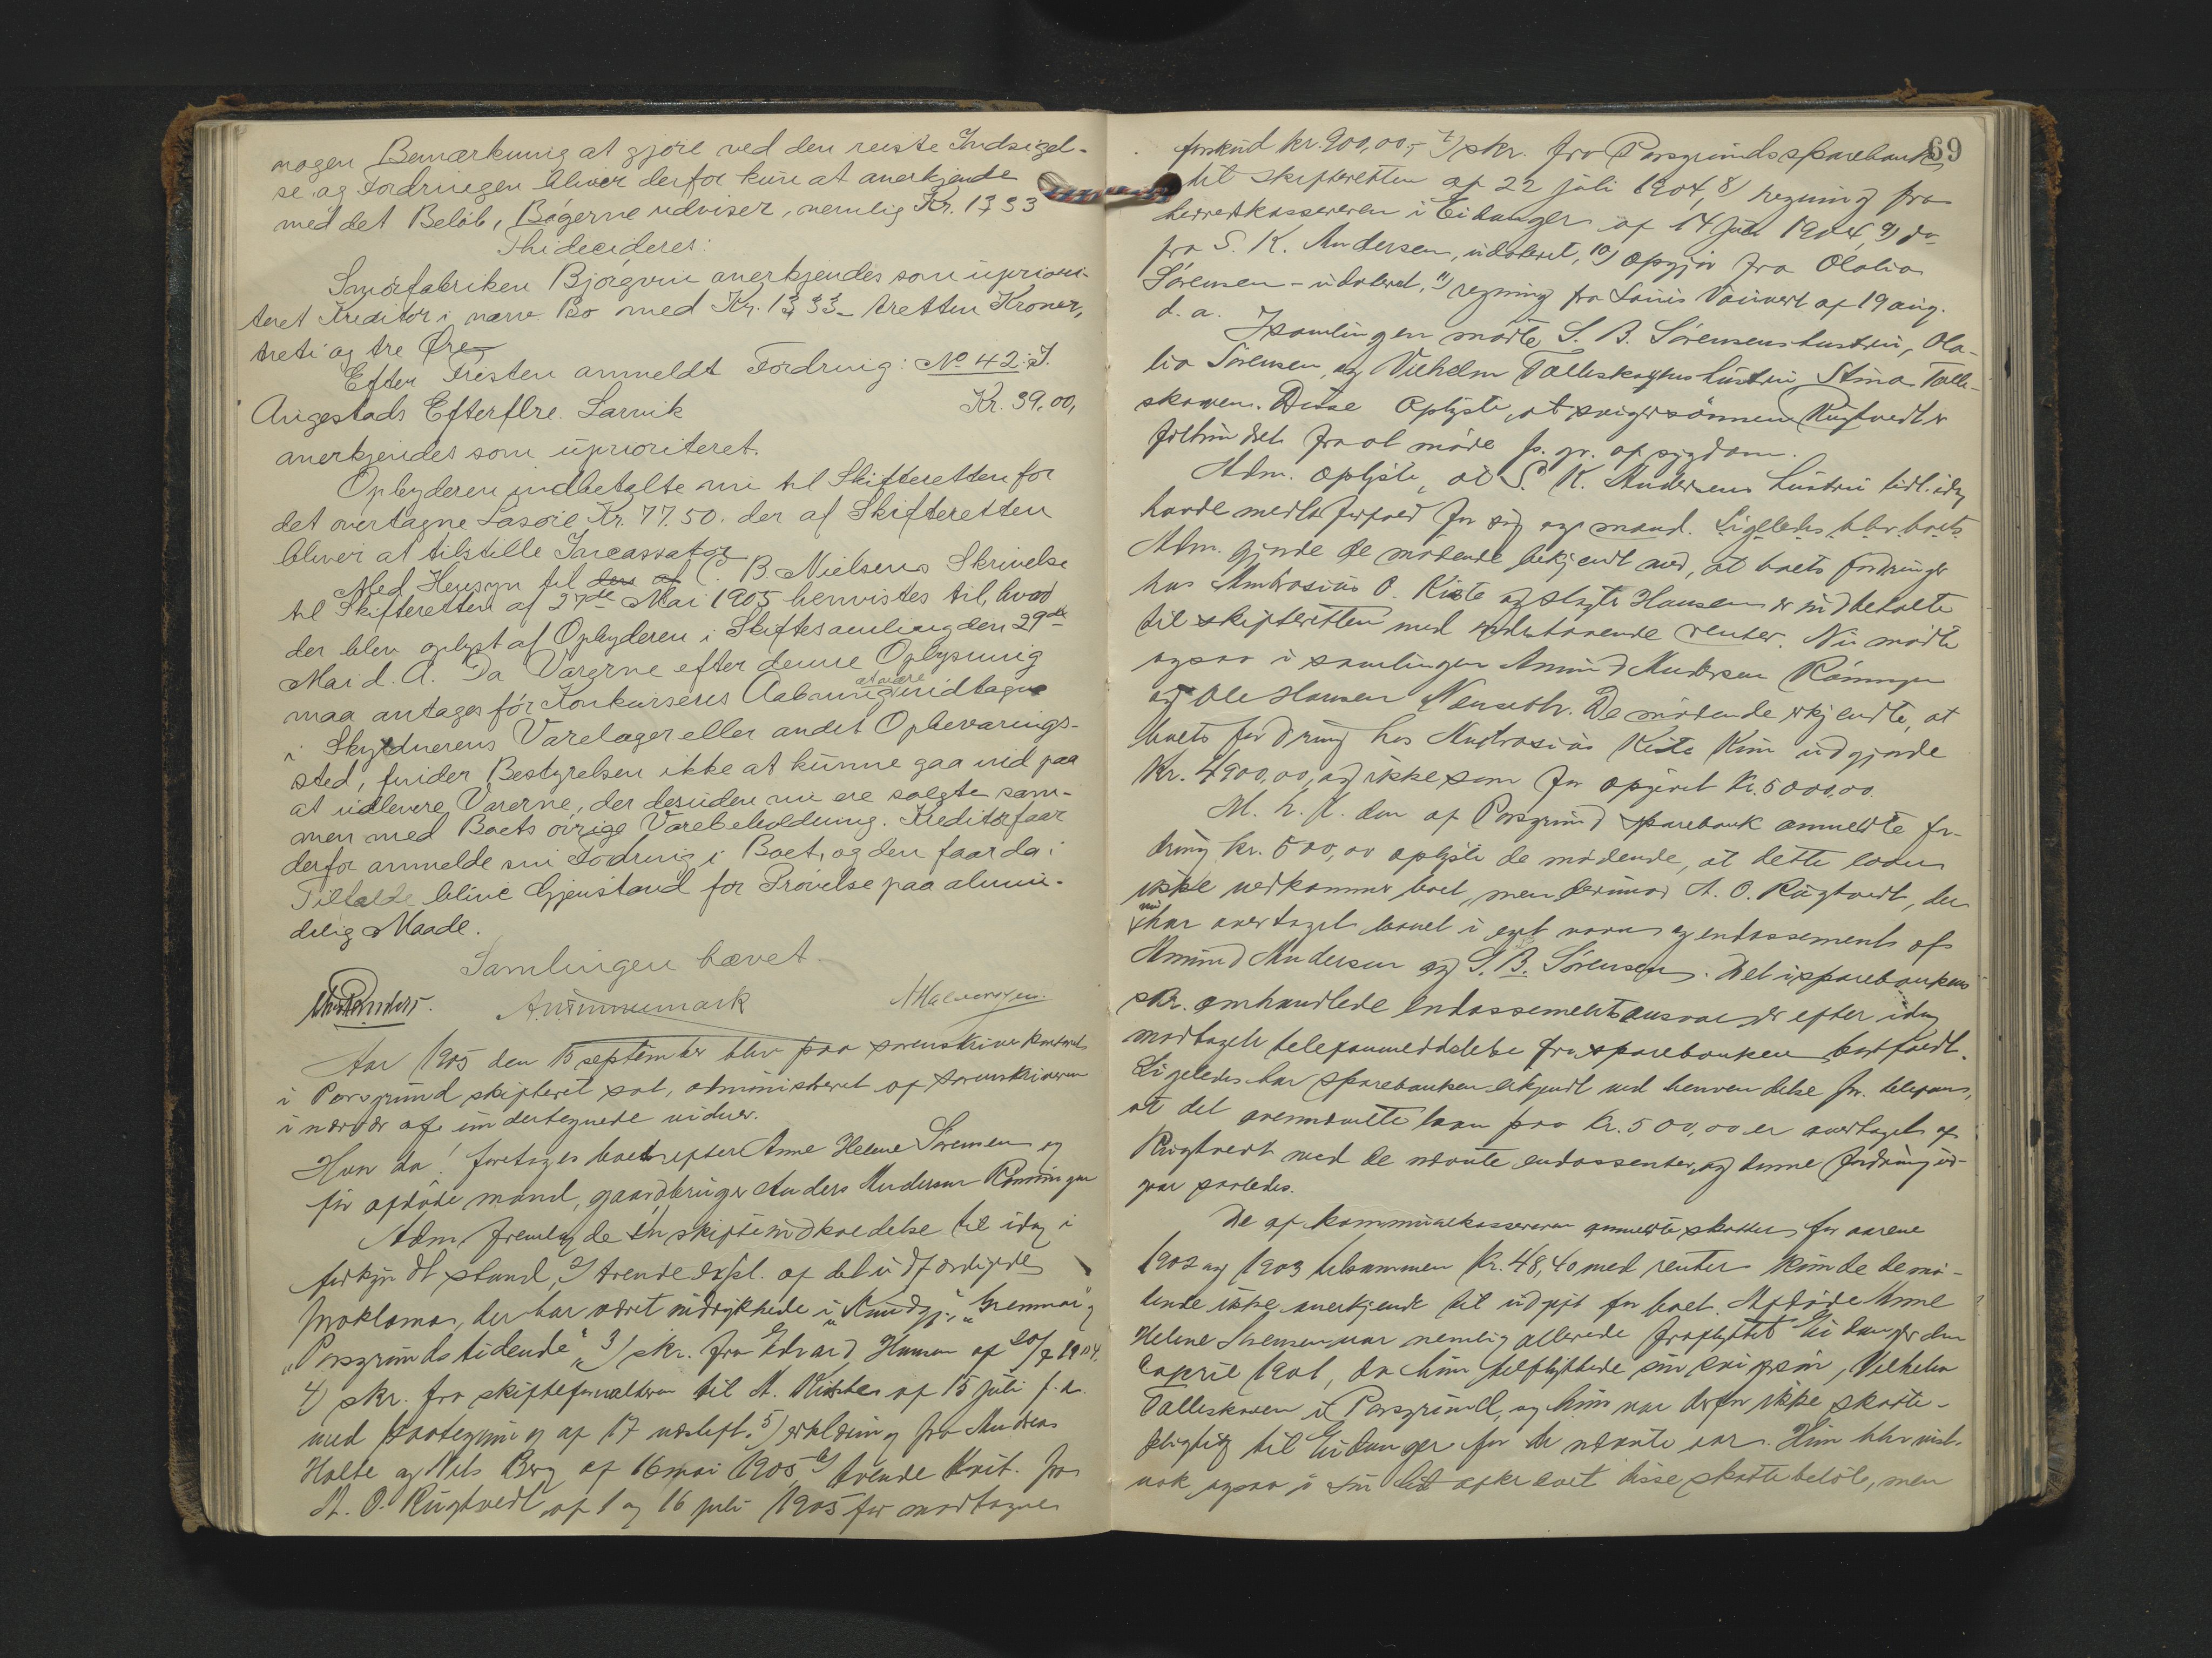 nogen Bemærkning at gjøre ved den reiste Indsigel-
se og Fordringen bliver derfor kun at anerkjende
med det Beløb, Bøgerne udviser, nemlig Kr. 13 33
Thi decideres:
Smørfabriken Bjørgvin anerkjendes som upriori-
teret Kreditor i nærv. Bo med Kr. 13 33 - tretten Kroner,
treti og tre Øre
Efter Fristen anmeldt Fordring: No 42: J.
Augestads Efterflre. Larvik Kr. 39,00,
anerkjendes som uprioriteret.
Opbyderen indbetalte nu til Skifteretten for
det overtagne Løsøre Kr. 77.50. der af Skifteretten
bliver at tilstille Incassator
Med Hensyn til C. B. Nielsens Skrivelse
til Skifteretten af 27de Mai 1905 henvistes til, hvad
der blev oplyst af Opbyderen i Skiftesamling den 29de
Mai d. A. Da Varerne efter denne Oplysning
maa antages før Konkursens Aabning at være indtagne
i Skyldnerens Varelager eller andet Opbevarings-
sted, finder Bestyrelsen ikke at kunne gaa ind paa
at udlevere Varerne, der desuden nu ere solgte sam-
men med Boets øvrige Varebeholdning. Kreditor faar
derfor anmelde sin Fodring i Boet, og den faar da i
Tilfælde blive Gjenstand for Prøvelse paa almin-
delig Maade.
Samlingen hævet.
Aar 1905 den 15 september blev paa sorenskriverkontoret
i Porsgrund skifteret sat, administreret af sorenskriveren
i nærvær af undertegnede vidner.
Hvor da! foretages boet efter Anne Helene Sørensen og
før afdøde mand, gaardbruger Anders Andersen Rønningen
Adm. fremlagde en skifteindkaldelse til idag i
forkyndt stand, 2) trende expl. af det udfærdigede
proklama, der har været indrykkede i „Kundgj.", „Grenmar" og
„Porsgrunds tidende", 3) skr. fra Edvard Hansen af 20/7 1904.
4) skr. fra skifteforvalteren til A. Kiste af 15 juli f. a.
med paategning af 17 næsteft. 5) erklæring fra Andreas
Holte og Nils Berg af 16 mai 1905, 6) tvende kvit. fra
A. O. Rugtvedt af 1 og 16 juli 1905 for modtagne
69
forskud kr. 900,00, 7) skr. fra Porsgrunds sparebank
til skifteretten af 22 juli 1904, 8) regning fra
herredskassereren i Eidanger af 14 juli 1904, 9) do
fra S. K. Andersen, udateret, 10) opgjør fra Olalia
Sørensen - udateret, 11) regning fra Louis af 19 aug.
d. a.
I samlingen mødte S. B. Sørensens hustru, Ola-
lia Sørensen, og Vilhelm Tolleskogens hustru Stina Tolle-
skoven. Disse oplyste, at svigersønnen Rugtvedt er
forhindret fra at møde p. gr. af sygdom.
Adm. oplyste, at S. K. Andersens hustru tidl. idag
havde meldt forfald for sig og mand. Ligeledes blev boets
Adm. gjorde de mødende bekjendt med, at boets fordringer
hos Ambrosius O. Kiste og Hansen er indbetalte
til skifteretten med vedrørende renter. Nu mødte
ogsaa i samlingen Amund Andersen Rønningen
og Ole Hansen Nenseth. De mødende erkjendte, at
boets fordring hos Ambrosius Kiste kun udgjorde
Kr. 4900,00, og ikke som før opgivet kr. 5000,00.
M. h. t. den af Porsgrund sparebank anmeldte for-
dring kr. 500,00 oplyste de mødende, at dette laan
ikke vedkommer boet, men derimod A. O. Rugtvedt, der
nu har overtaget laanet i eget navn og endossements af
Amund Andersen og S. B. Sørensen. Det i sparebankens
skr. omhandlede endossementsansvar er efter idag
modtagelt telefonmeddelelse fra sparebanken bortfaldt.
Ligeledes har sparebanken erkjendt ved henvendelse pr. telefon,
at det ovennævnte laan paa kr. 500,00 er overtaget af
Rugtvedt med de nævnte endossenter, og denne fordring ud-
gaar saaledes.
De af kommunekassereren anmeldte skatter for aarene
1902 og 1903 tilsammen kr. 48,40 med renter kunde de mø-
dende ikke anerkjende til udgift for boet. Afdøde Anne
Helene Sørensen var nemlig allerede fraflyttet Eidanger den
april 1901, da hun tilflyttede sin svigersøn, Vilhelm
Tolleskoven i Porsgrund, og hun var derfor ikke skatte-
pligtig til Eidanger for de nævnte aar. Hun blev vist-
nok ogsaa i sin tid afkrævet disse skattebeløb, men